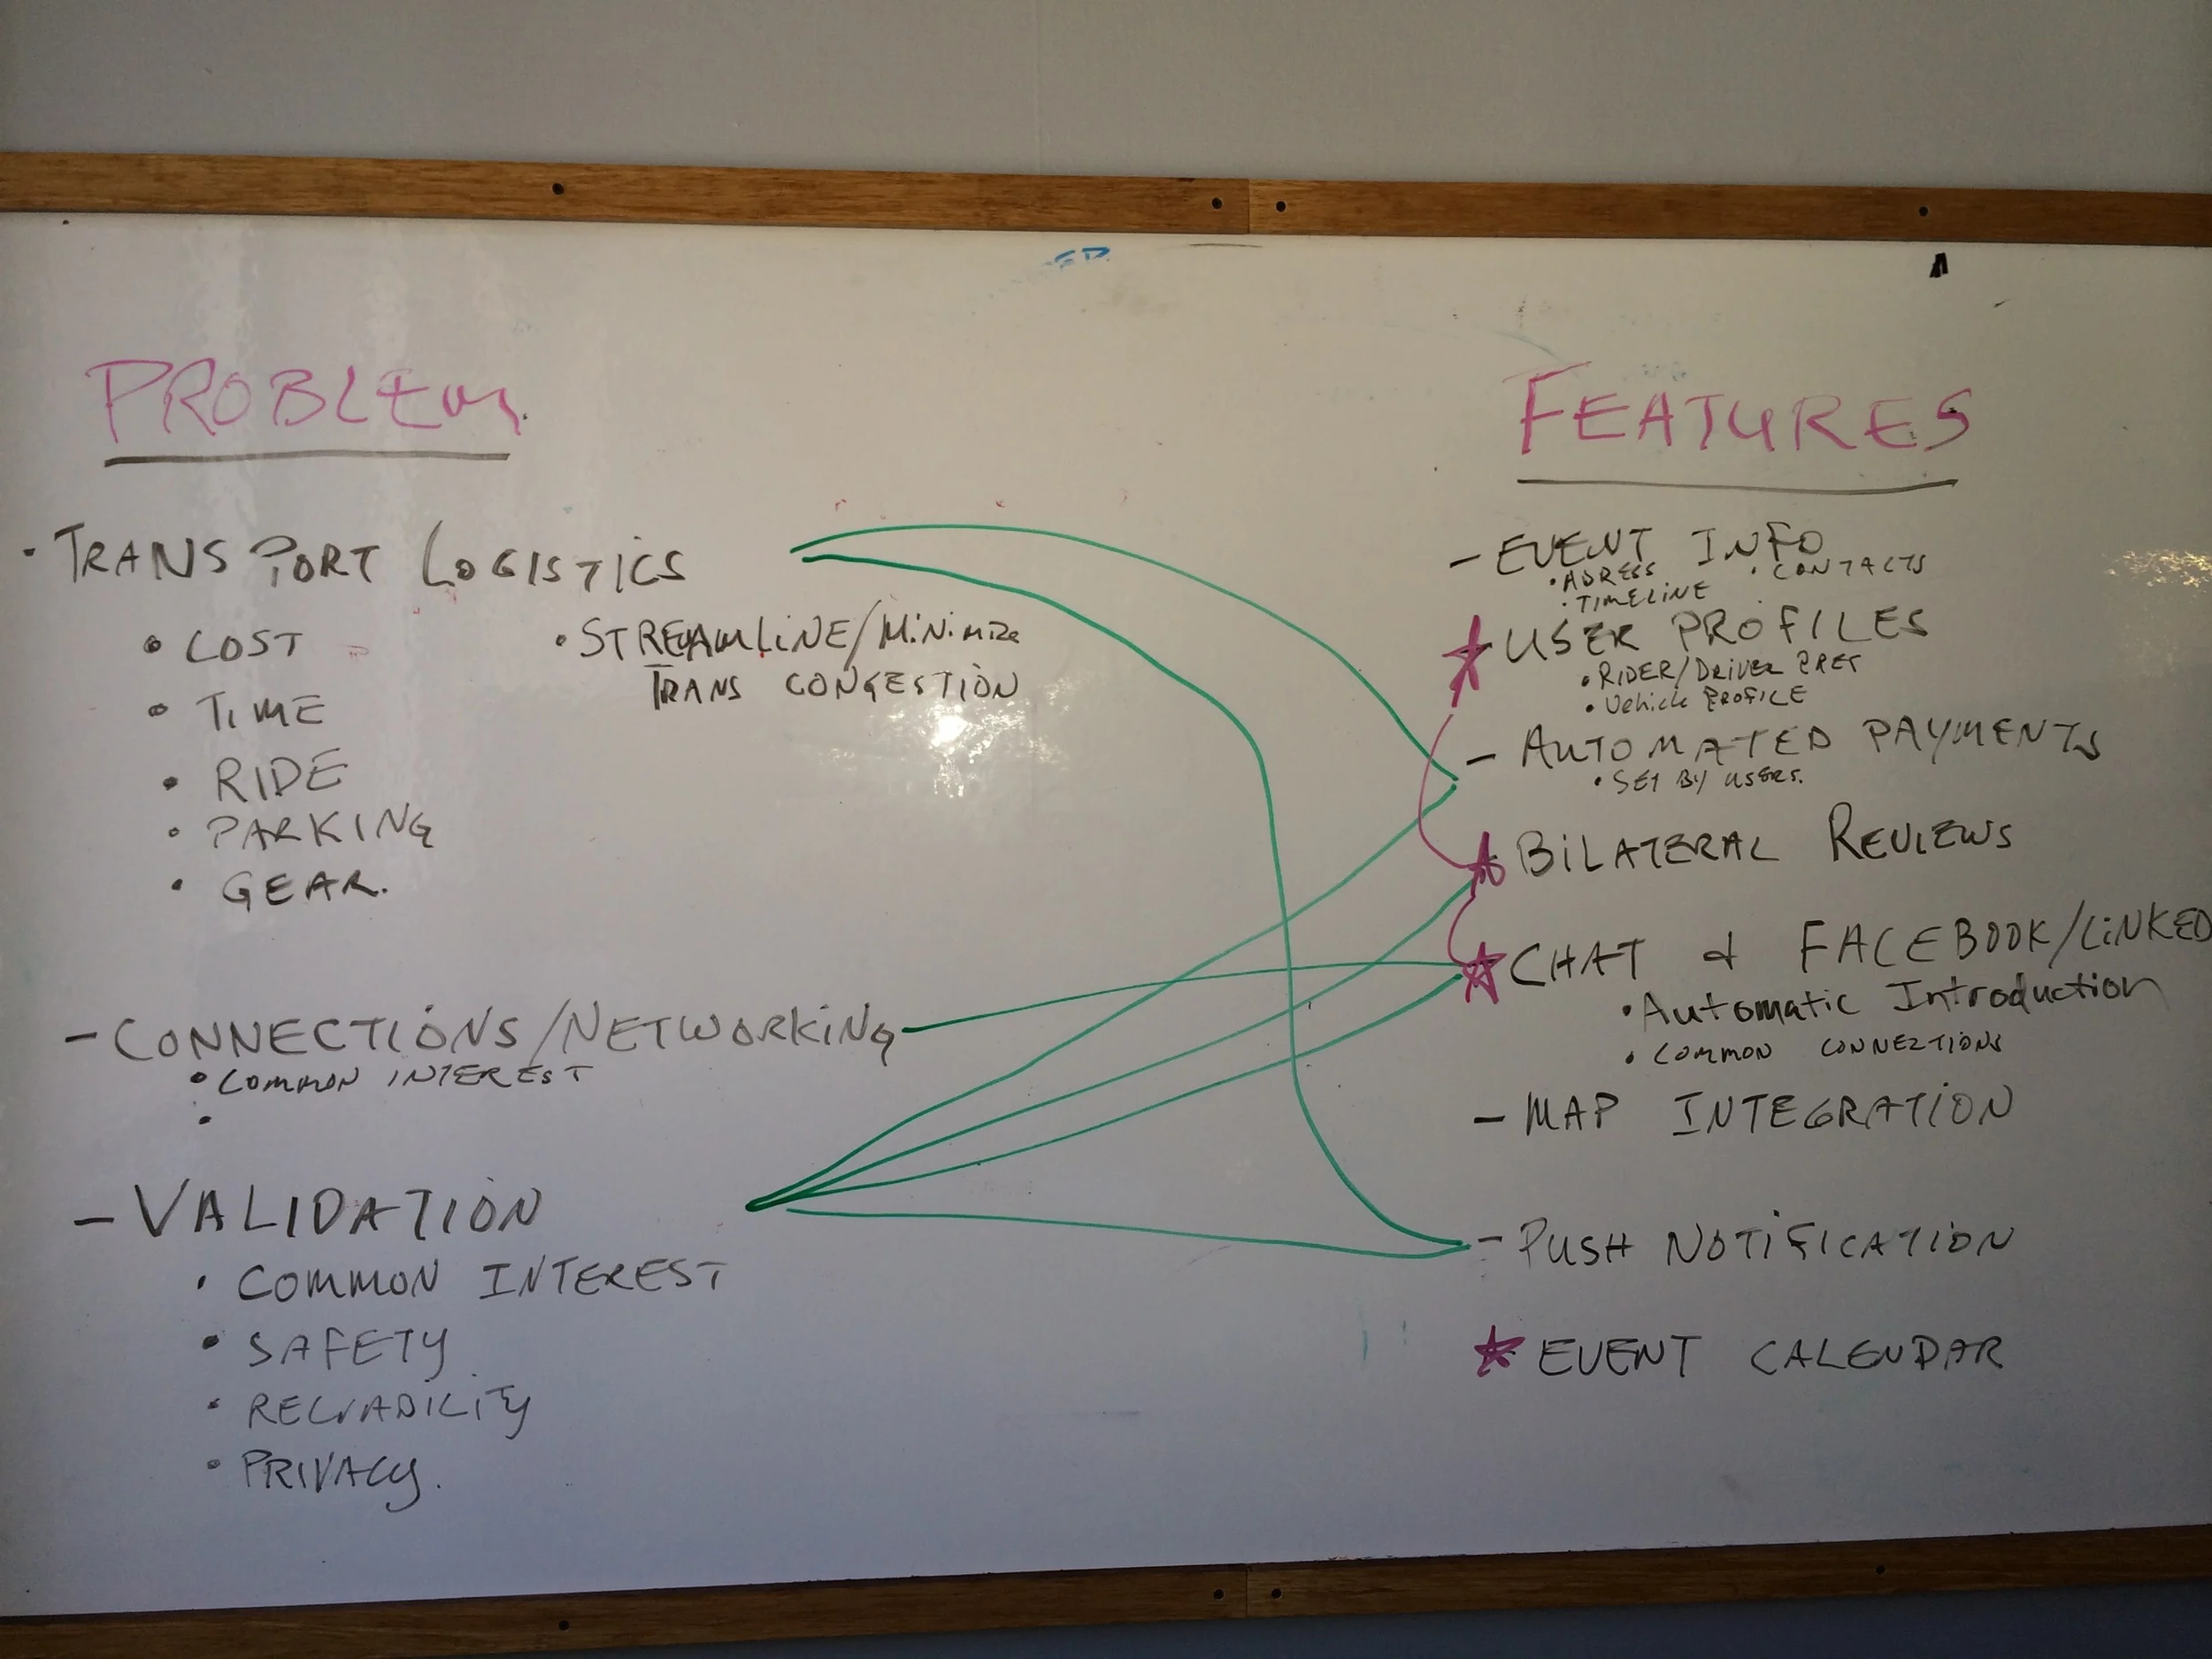 PROBLEM
· TRANSPORT LOGISTICS
• COST
• TIME
• RIDE
• PARKING
• GEAR.
• STREAMLINE/MINIMIZE
TRANS CONGESTION
- CONNECTIONS/NETWORKING
• COMMON INTEREST
•
- VALIDATION
• COMMON INTEREST
• SAFETY
• RELIABILITY
• PRIVACY.
FEATURES
- EVENT INFO
• ADRESS • CONTACTS
• TIMELINE
★ USER PROFILES
• RIDER/DRIVER PREF
• Vehicle PROFILE
- AUTOMATED PAYMENTS
• SET BY USERS.
★ BILATERAL REVIEWS
★ CHAT & FACEBOOK/LINKED
• Automatic Introduction
• COMMON CONNECTIONS
- MAP INTEGRATION
- PUSH NOTIFICATION
★ EVENT CALENDAR